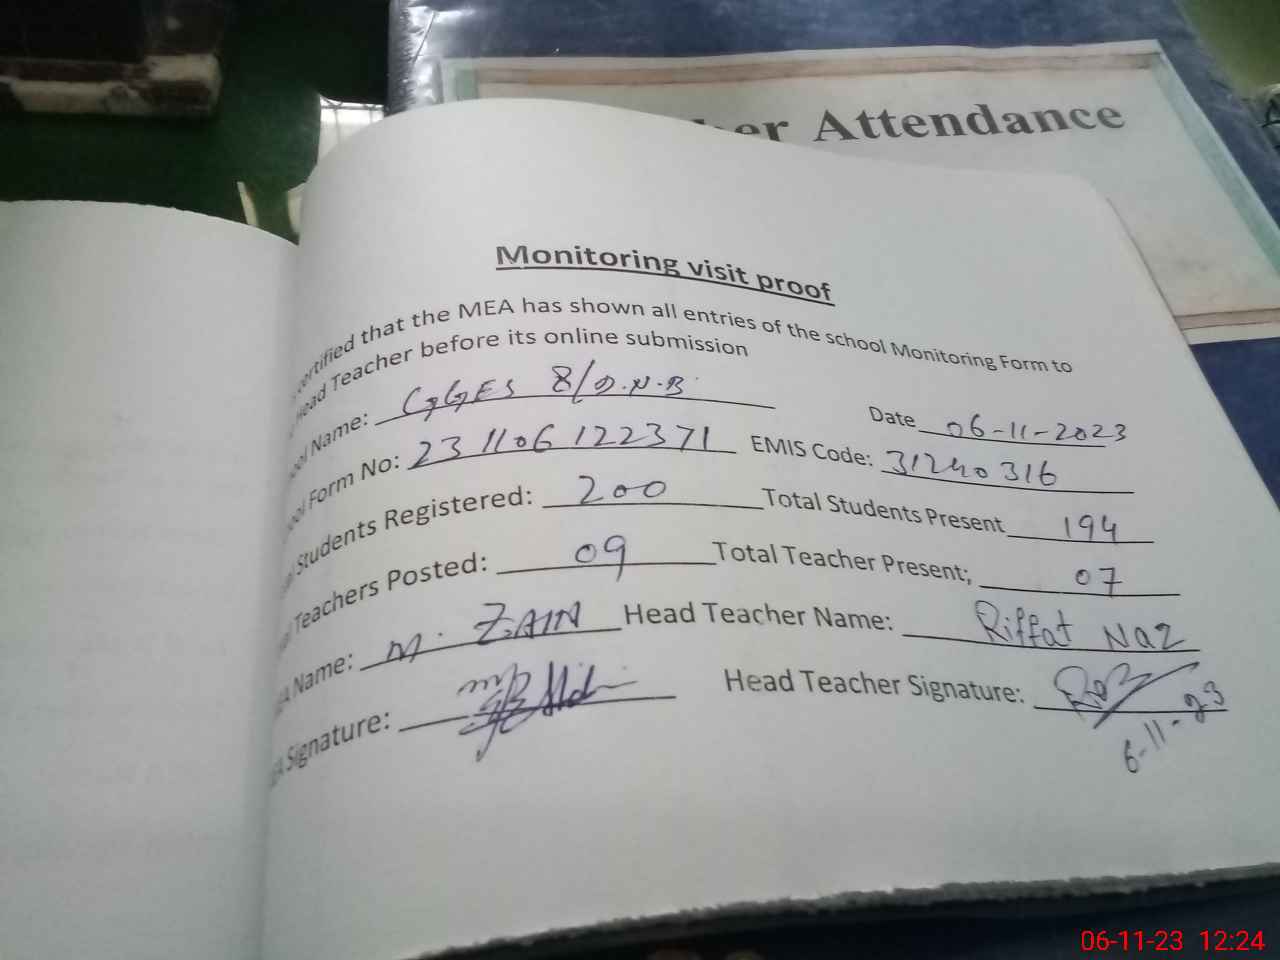 her Attendance
Monitoring visit proof
ertified that the MEA has shown all entries of the school Monitoring Form to
Head Teacher before its online submission
ool Name: GGES 8/D.N.B Date 06-11-2023
ool Form No: 231106122371 EMIS Code: 31240316
Students Registered: 200 Total Students Present 194
Teachers Posted: 09 Total Teacher Present; 07
A Name: M. ZAIN Head Teacher Name: Riffat Naz
A Signature: Head Teacher Signature:
6-11-23
06-11-23 12:24